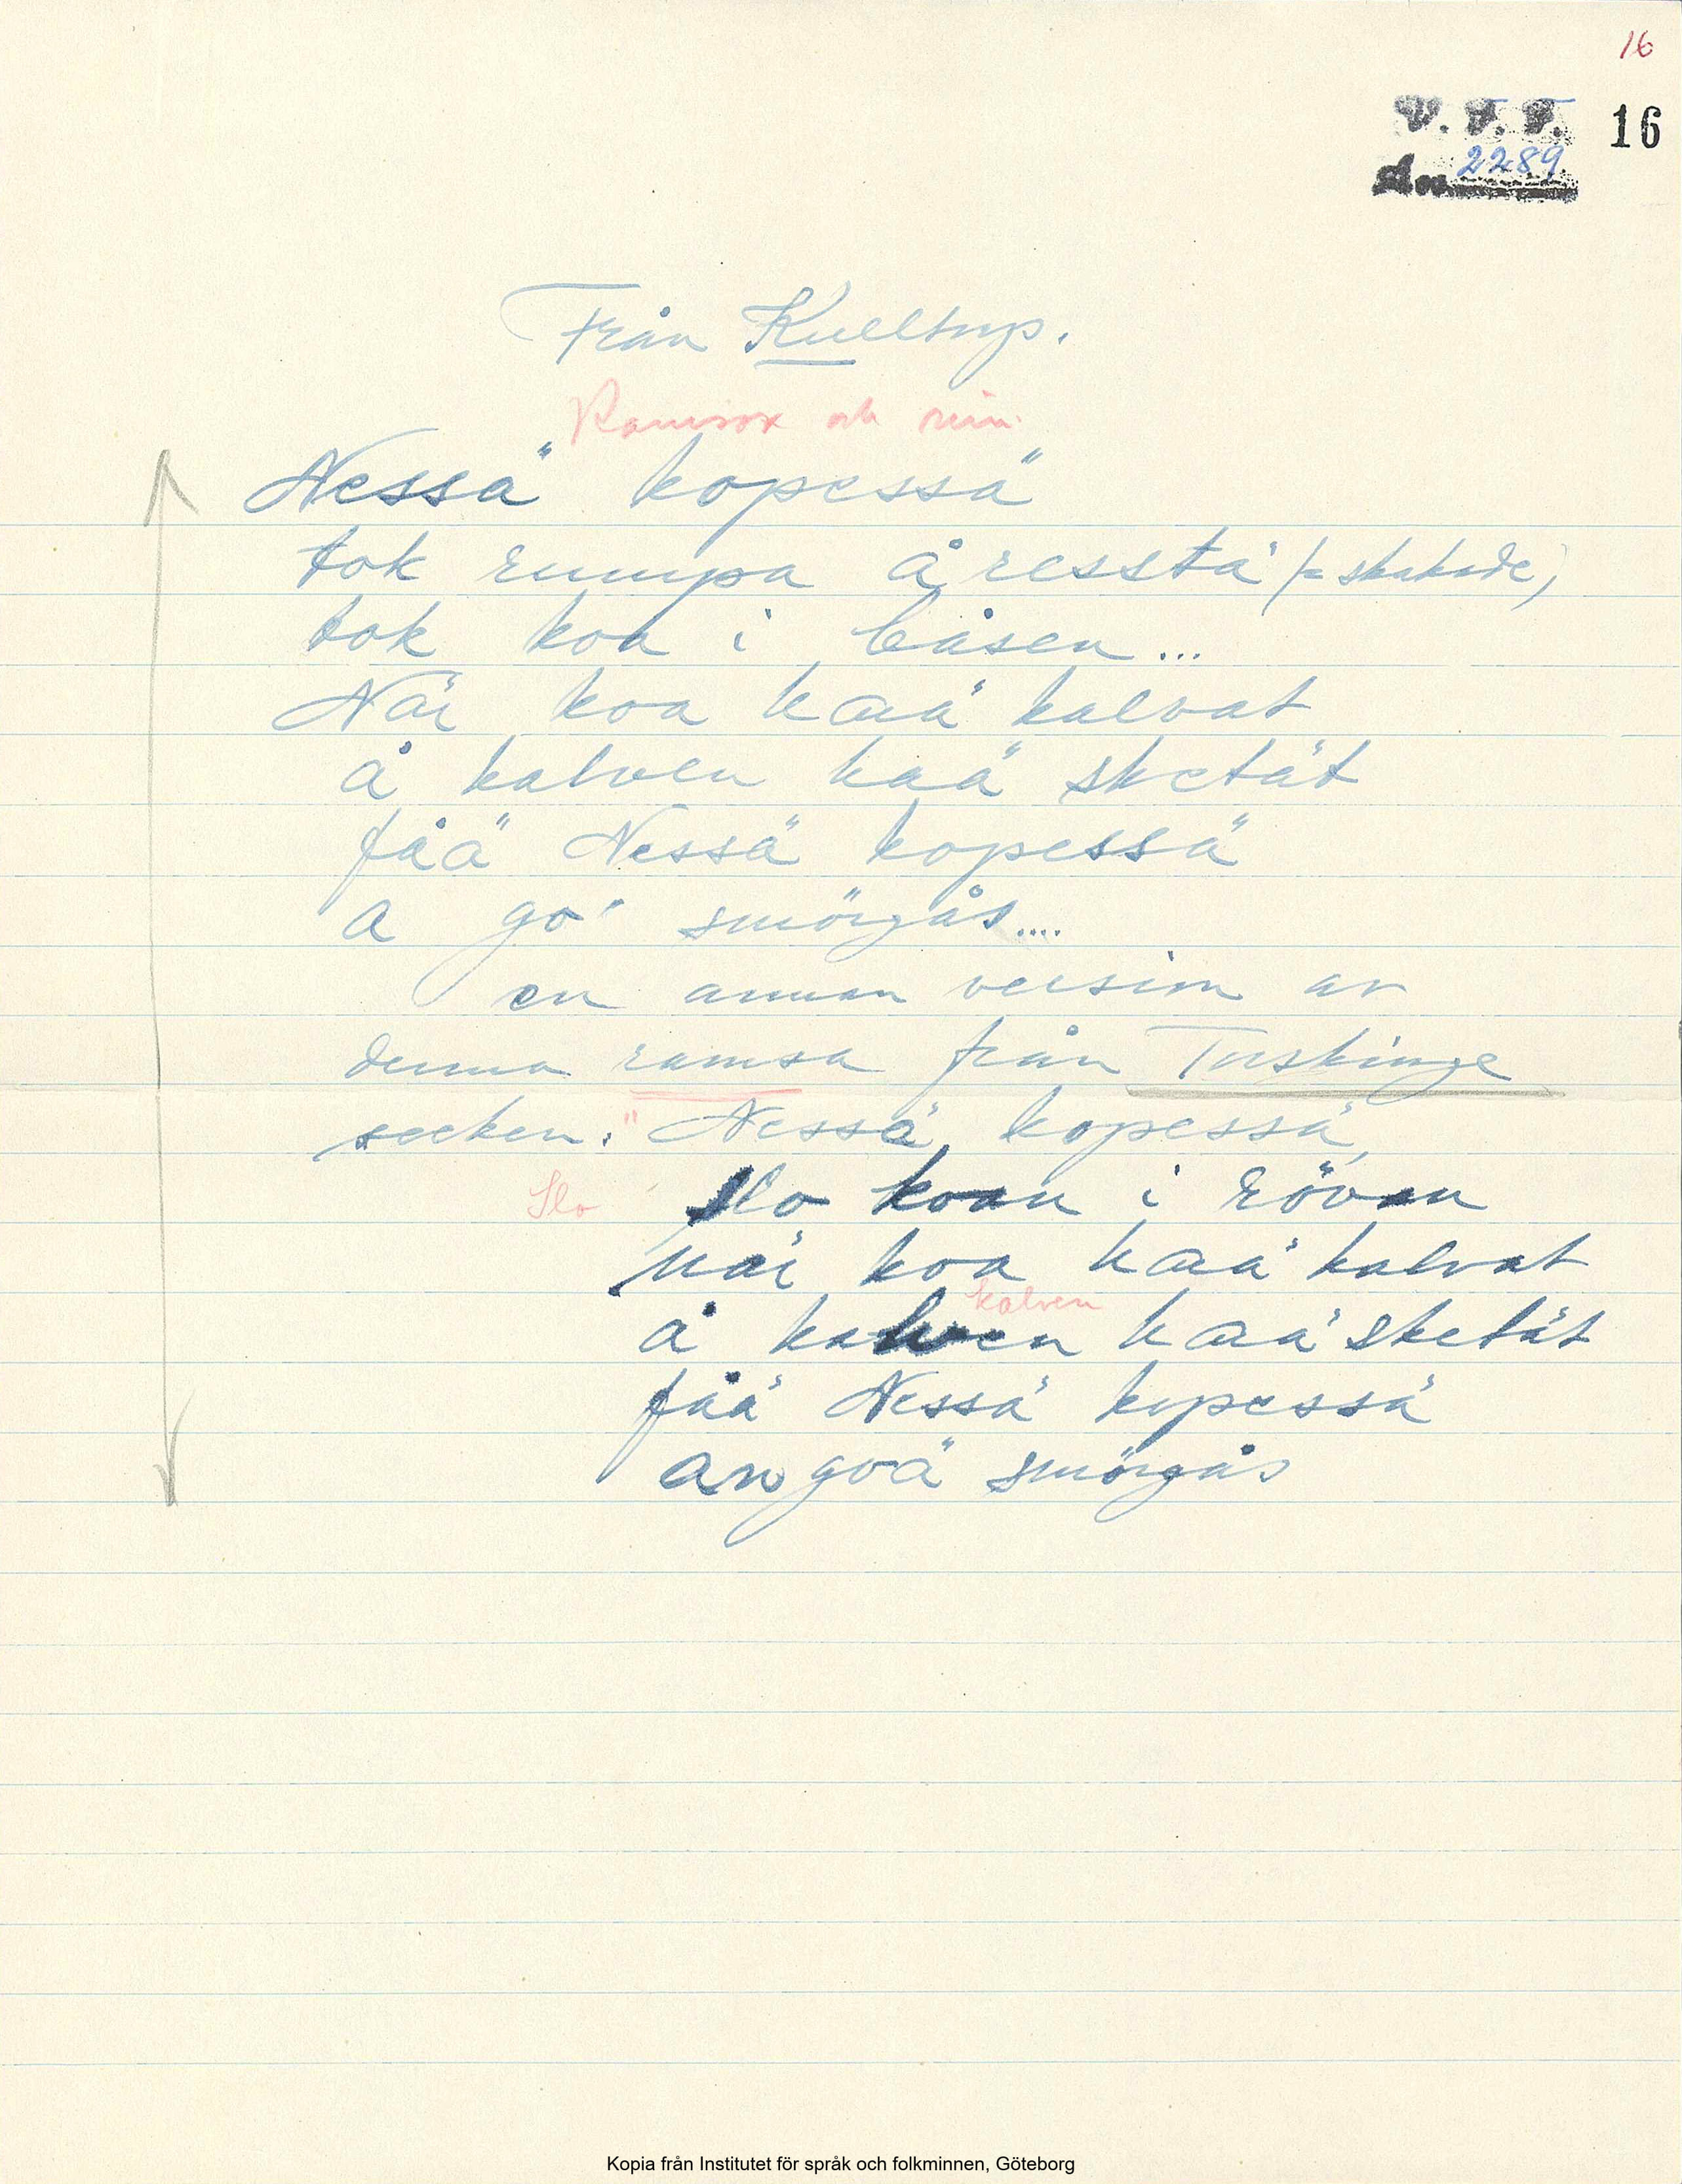 16
V. F. F. 16
Acc. 2289
Från Kulltrop.
Ramsor och rim
Nessä kopessä
tok rumpa å resstä (= skakade)
tok koa i båsen...
När koa haä kalvat
å kalven haä sketät
fåä Nessä kopessä
a go' smörgås....
en annan version av
denna ramsa från Torskinge
socken: "Nessä kopessä
Slo slo koan i röven
när koa haä kalvat
kalven
å kalven haä sketät
fåä Nessä kopessä
an goä smörgås
Kopia från Institutet för språk och folkminnen, Göteborg